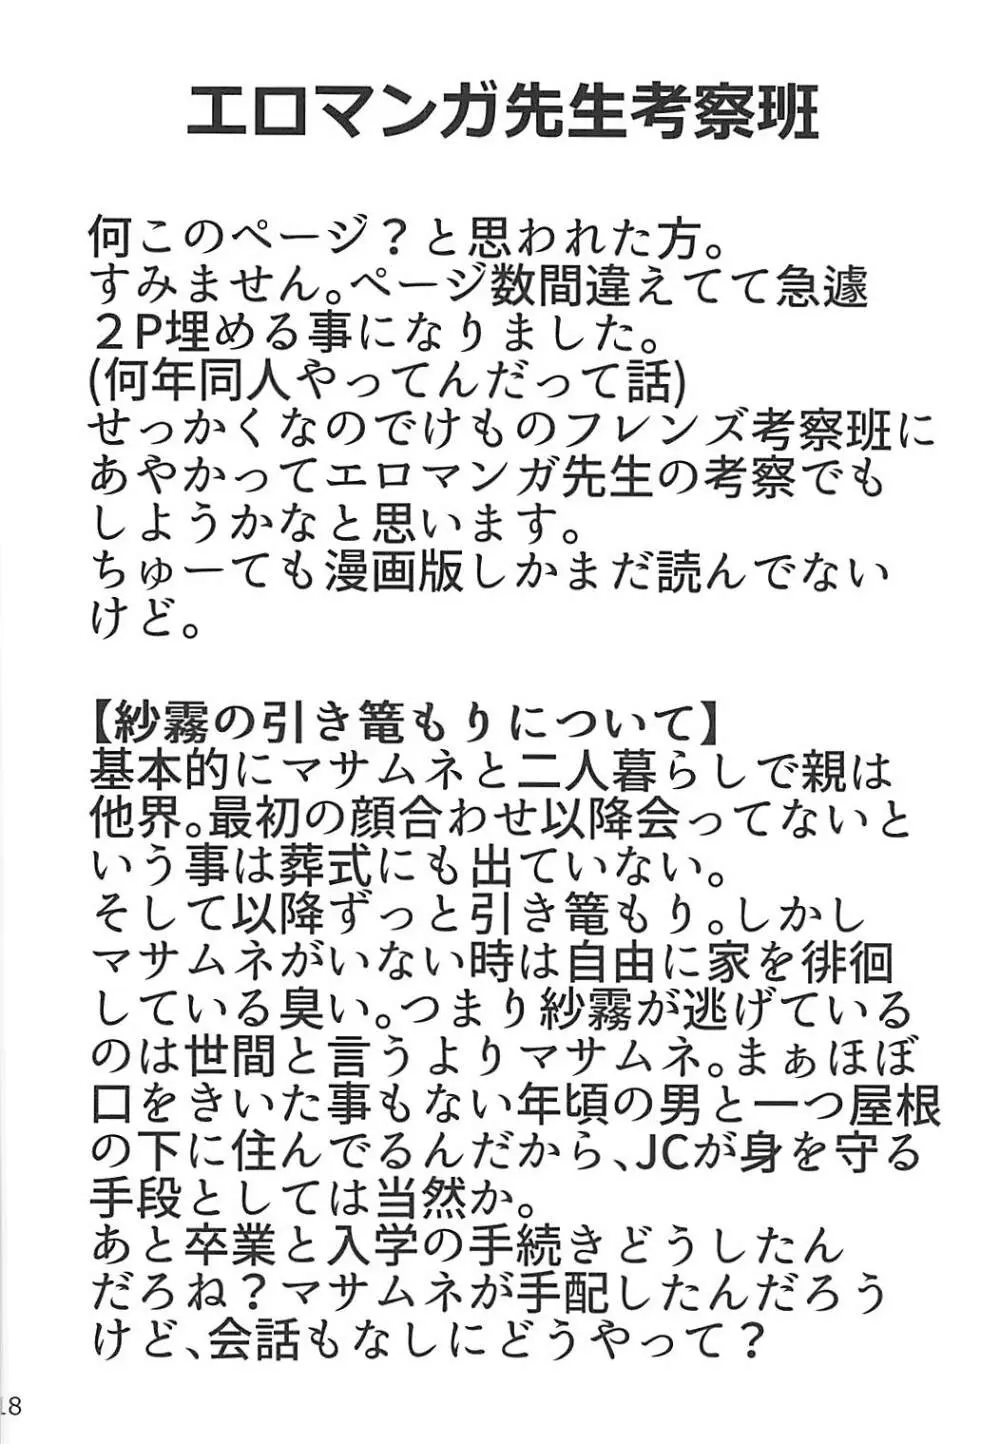 エロマンガ先生考察班
何このページ？と思われた方。
すみません。ページ数間違えてて急遽
２P埋める事になりました。
(何年同人やってんだって話)
せっかくなのでけものフレンズ考察班に
あやかってエロマンガ先生の考察でも
しようかなと思います。
ちゅーても漫画版しかまだ読んでない
けど。
【紗霧の引き篭もりについて】
基本的にマサムネと二人暮らしで親は
他界。最初の顔合わせ以降会ってないと
いう事は葬式にも出ていない。
そして以降ずっと引き篭もり。しかし
マサムネがいない時は自由に家を徘徊
している臭い。つまり紗霧が逃げている
のは世間と言うよりマサムネ。まぁほぼ
口をきいた事もない年頃の男と一つ屋根
の下に住んでるんだから、JCが身を守る
手段としては当然か。
あと卒業と入学の手続きどうしたん
だろね？マサムネが手配したんだろう
けど、会話もなしにどうやって？
18